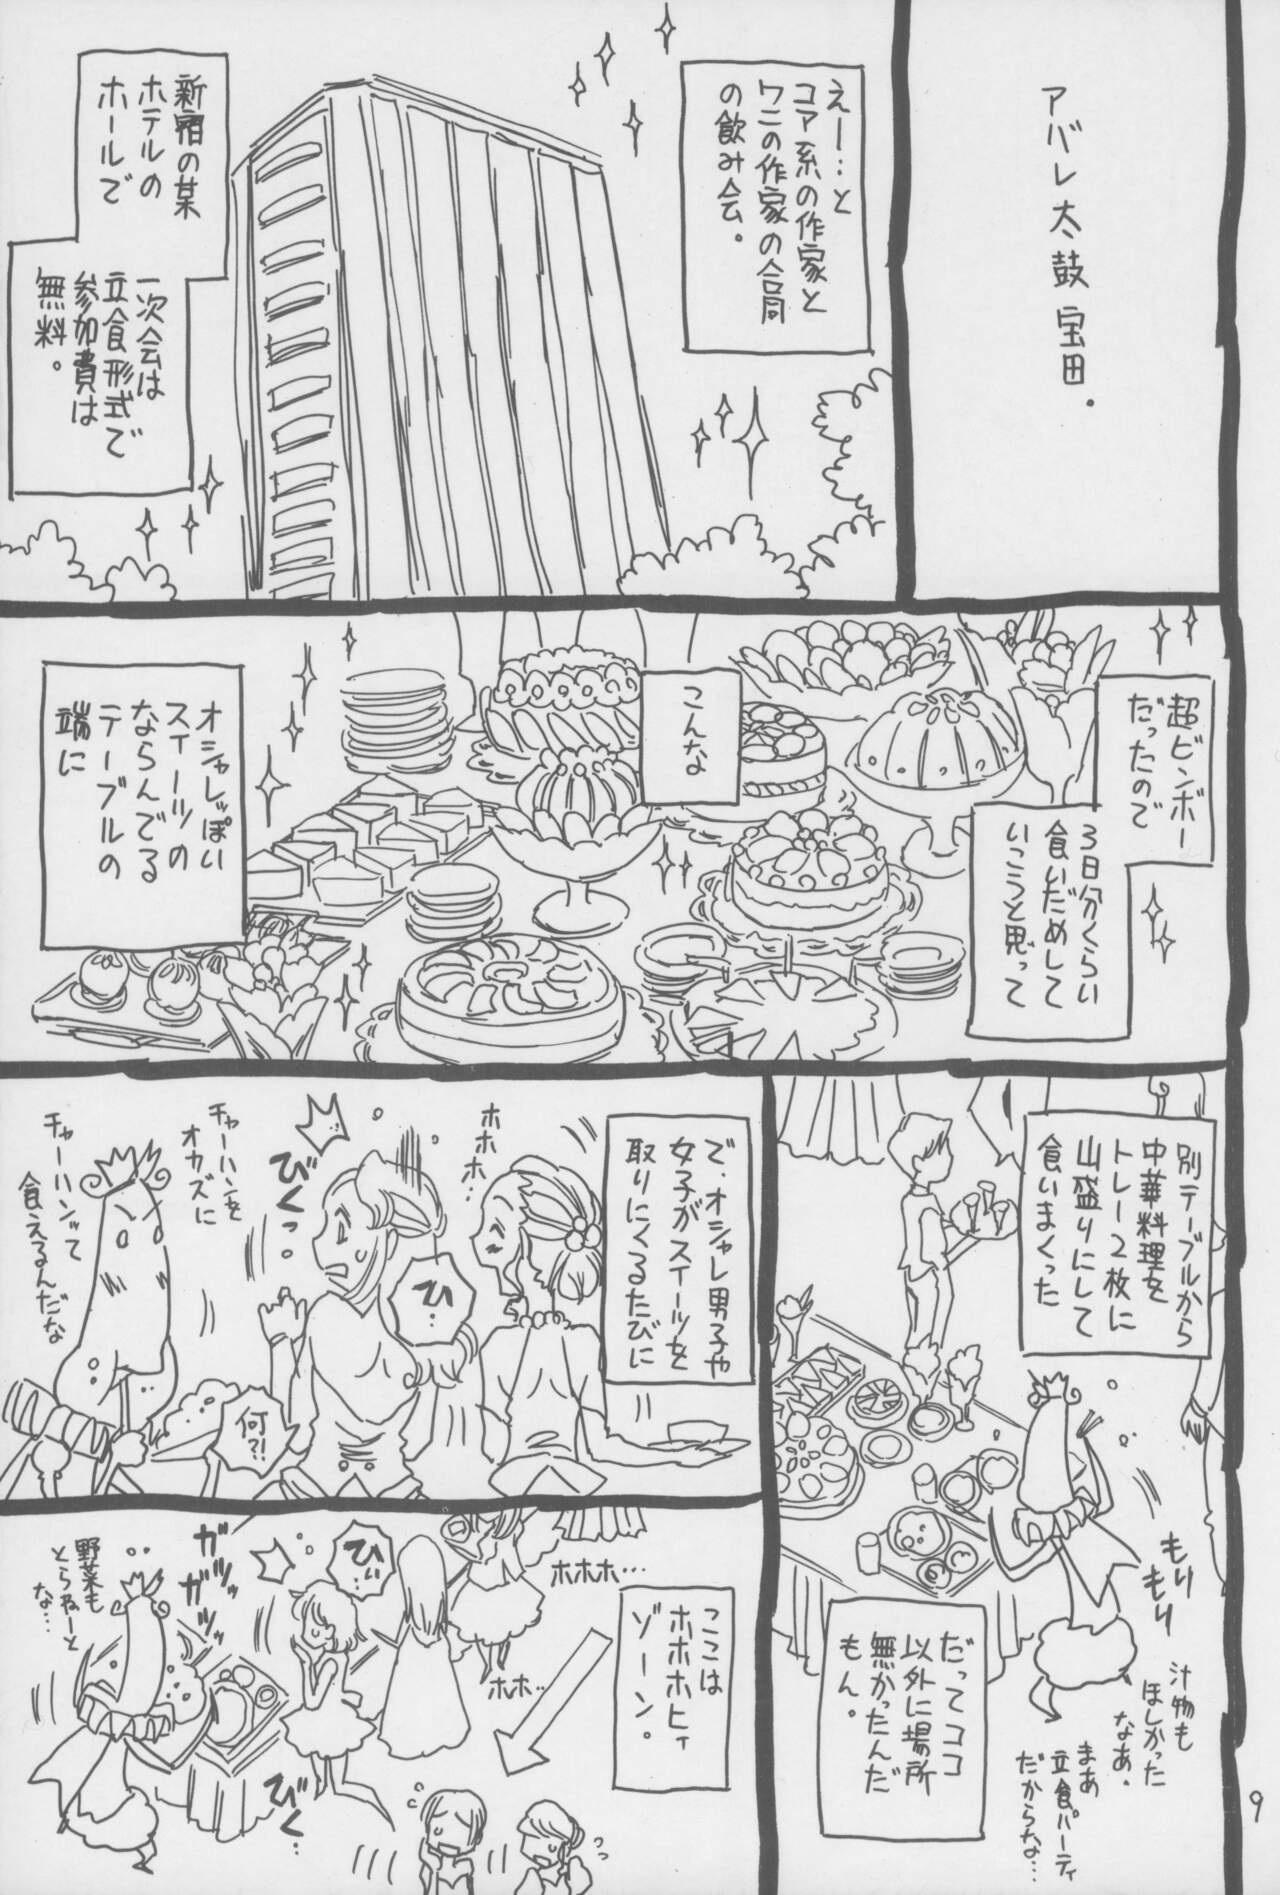 アバレ太鼓宝田.
えー…と
コア系の作家と
ワニの作家の合同
の飲み会。
新宿の某
ホテルの
ホールで
一次会は
立食形式で
参加費は
無料。
超ビンボー
だったので
3日分くらい
食いだめして
いっこうと思って
こんな
オシャレっぽい
スイーツの
ならんでる
テーブルの
端に
別テーブルから
中華料理を
トレー2枚に
山盛りにして
食いまくった
もりもり
汁物も
ほしかった
なあ.
まあ
立食パーティ
だからな…
だってココ
以外に場所
無かったんだ
もん。
で、オシャレ男子や
女子がスイーツを
取りにくるたびに
ホホホ…
ひ…
びくっ
何?!
チャーハンを
オカズに
チャーハンって
食えるんだな
ここは
ホホホヒィ
ゾーン。
ホホホ…
ホホ…
ひぃ…
びく…
ガツッ
ガツッ
野菜も
とらねーと
な…
9